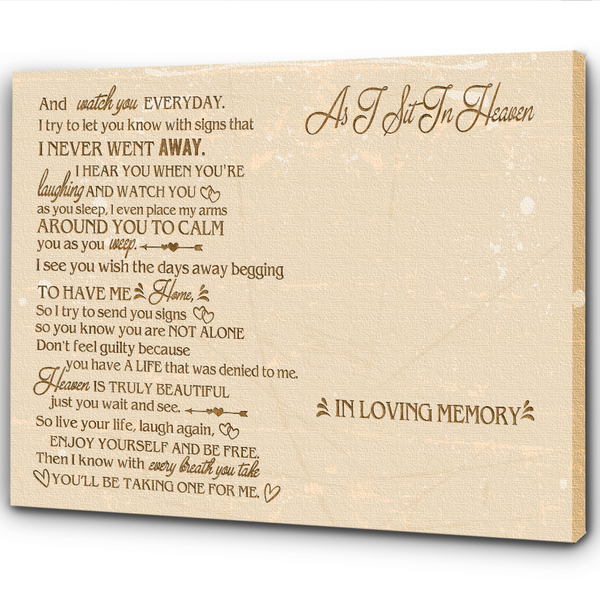 As I Sit In Heaven
And watch you EVERYDAY.
I try to let you know with signs that
I NEVER WENT AWAY.
I HEAR YOU WHEN YOU'RE
laughing AND WATCH YOU
as you sleep, I even place my arms
AROUND YOU TO CALM
you as you weep.
I see you wish the days away begging
TO HAVE ME Home,
So I try to send you signs
so you know you are NOT ALONE
Don't feel guilty because
you have A LIFE that was denied to me.
Heaven IS TRULY BEAUTIFUL
just you wait and see.
So live your life, laugh again,
ENJOY YOURSELF AND BE FREE.
Then I know with every breath you take
YOU'LL BE TAKING ONE FOR ME.
IN LOVING MEMORY